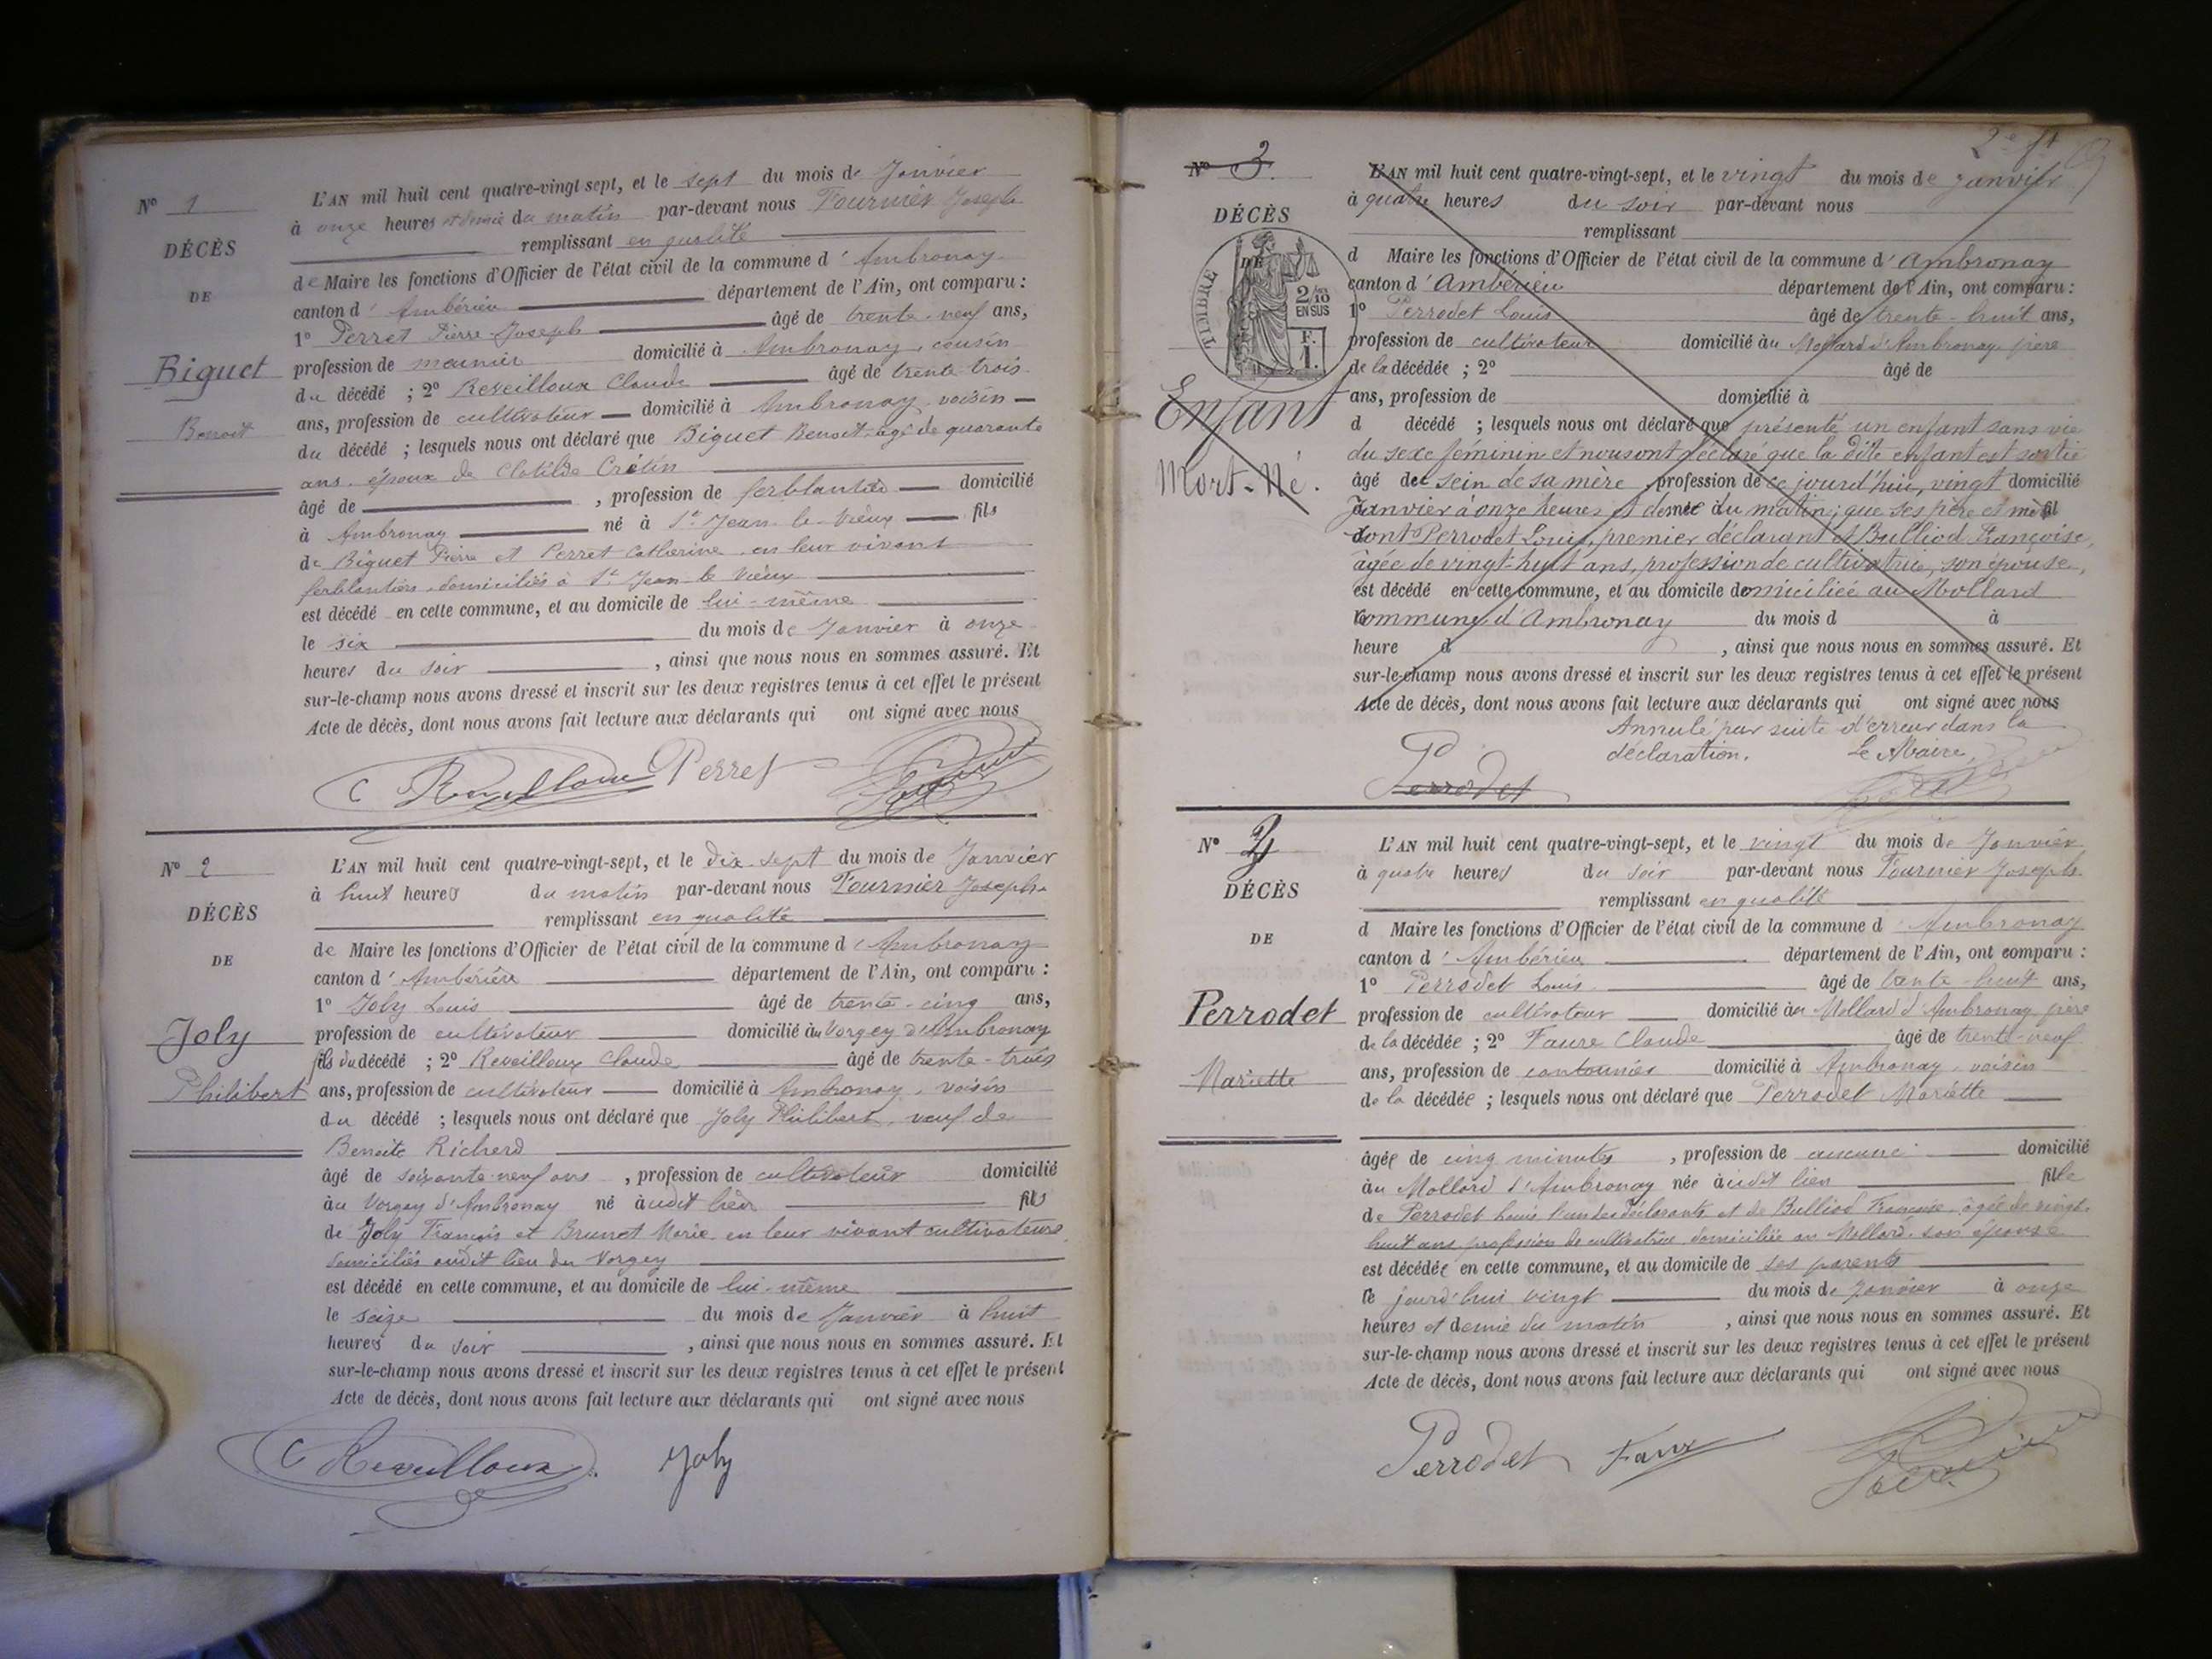 N° 1
DÉCÈS
DE
Biguet
Benoit
L'AN mil huit cent quatre-vingt sept, et le sept du mois de Janvier
à onze heures et demie du matin par-devant nous Fournier Joseph
remplissant en qualité
de Maire les fonctions d'Officier de l'état civil de la commune d'Ambronay
canton d'Ambérieu département de l'Ain, ont comparu :
1° Perret Pierre Joseph âgé de trente-neuf ans,
profession de meunier domicilié à Ambronay, cousin
du décédé ; 2° Reveilloux Claude âgé de trente trois
ans, profession de cultivateur domicilié à Ambronay, voisin
du décédé ; lesquels nous ont déclaré que Biguet Benoit, âgé de quarante
ans, époux de Clotilde Crétin
âgé de , profession de ferblantier domicilié
à Ambronay né à St Jean-le-Vieux fils
de Biguet Pierre et Perret Catherine en leur vivant
ferblantiers, domiciliés à St Jean le Vieux
est décédé en cette commune, et au domicile de lui-même
le six du mois de Janvier à onze
heures du soir , ainsi que nous nous en sommes assuré. Et
sur-le-champ nous avons dressé et inscrit sur les deux registres tenus à cet effet le présent
Acte de décès, dont nous avons fait lecture aux déclarants qui ont signé avec nous
C Reveilloux Perret
N° 2
DÉCÈS
DE
Joly
Philibert
L'AN mil huit cent quatre-vingt-sept, et le dix-sept du mois de Janvier
à huit heures du matin par-devant nous Fournier Joseph
remplissant en qualité
de Maire les fonctions d'Officier de l'état civil de la commune d'Ambronay
canton d'Ambérieu département de l'Ain, ont comparu :
1° Joly Louis âgé de trente-cinq ans,
profession de cultivateur domicilié au Vorgey d'Ambronay
fils du décédé ; 2° Reveilloux Claude âgé de trente-trois
ans, profession de cultivateur domicilié à Ambronay, voisin
du décédé ; lesquels nous ont déclaré que Joly Philibert, veuf de
Benoite Richerd
âgé de soixante-neuf ans , profession de cultivateur domicilié
au Vorgey d'Ambronay né audit lieu fils
de Joly François et Brunet Marie en leur vivant cultivateurs
domiciliés audit lieu du Vorgey
est décédé en cette commune, et au domicile de lui-même
le seize du mois de Janvier à huit
heures du soir , ainsi que nous nous en sommes assuré. Et
sur-le-champ nous avons dressé et inscrit sur les deux registres tenus à cet effet le présent
Acte de décès, dont nous avons fait lecture aux déclarants qui ont signé avec nous
C Reveilloux Joly
2e ft
N° 3.
DÉCÈS
DE
TIMBRE
2/10
EN SUS
F.
1.
Enfant
Mort-Né.
L'AN mil huit cent quatre-vingt-sept, et le vingt du mois de Janvier
à quatre heures du soir par-devant nous
remplissant
d Maire les fonctions d'Officier de l'état civil de la commune d'Ambronay
canton d'Ambérieu département de l'Ain, ont comparu :
1° Perrodet Louis âgé de trente-huit ans,
profession de cultivateur domicilié au Mollard d'Ambronay père
de la décédée ; 2° âgé de
ans, profession de domicilié à
d décédé ; lesquels nous ont déclaré que présenté un enfant sans vie
du sexe féminin et nous ont déclaré que la dite enfant est sortie
âgé de sein de sa mère , profession de ce jourd'hui, vingt domicilié
Janvier à onze heures et demie du matin; que ses père et mère fil
dont Perrodet Louis, premier déclarant et Bulliod Françoise,
âgée de vingt-huit ans, profession de cultivatrice, son épouse,
est décédé en cette commune, et au domicile domiciliée au Mollard
commune d'Ambronay du mois d à
heure d , ainsi que nous nous en sommes assuré. Et
sur-le-champ nous avons dressé et inscrit sur les deux registres tenus à cet effet le présent
Acte de décès, dont nous avons fait lecture aux déclarants qui ont signé avec nous
Annulé par suite d'erreur dans la
déclaration. Le Maire,
Perrodet
N° 3
DÉCÈS
DE
Perrodet
Mariette
L'AN mil huit cent quatre-vingt-sept, et le vingt du mois de Janvier
à quatre heures du soir par-devant nous Fournier Joseph
remplissant en qualité
d Maire les fonctions d'Officier de l'état civil de la commune d'Ambronay
canton d'Ambérieu département de l'Ain, ont comparu :
1° Perrodet Louis âgé de trente-huit ans,
profession de cultivateur domicilié au Mollard d'Ambronay, père
de la décédée ; 2° Faure Claude âgé de trente-neuf
ans, profession de cantonnier domicilié à Ambronay, voisin
de la décédée ; lesquels nous ont déclaré que Perrodet Mariette
âgée de cinq minutes , profession de aucune domicilié
au Mollard d'Ambronay née audit lieu fille
de Perrodet Louis l'un des déclarants et de Bulliod Françoise, âgée de vingt-
huit ans, profession de cultivatrice, domiciliée au Mollard, son épouse
est décédée en cette commune, et au domicile de ses parents
le jourd'hui vingt du mois de Janvier à onze
heures et demie du matin , ainsi que nous nous en sommes assuré. Et
sur-le-champ nous avons dressé et inscrit sur les deux registres tenus à cet effet le présent
Acte de décès, dont nous avons fait lecture aux déclarants qui ont signé avec nous
Perrodet Faure